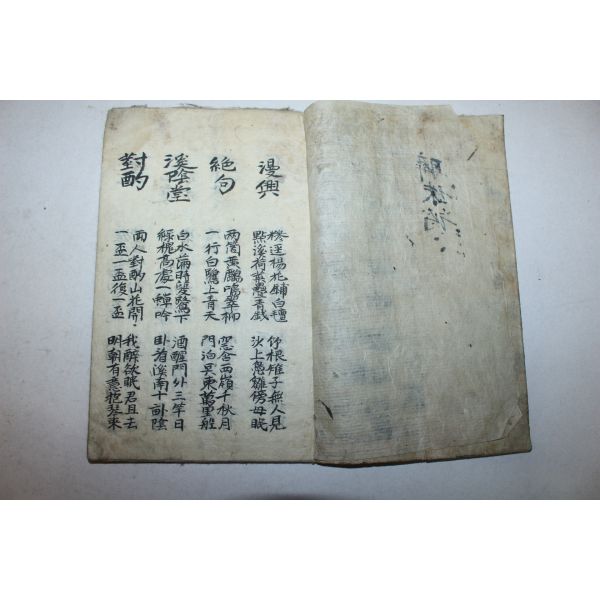 漫興
糝逕楊花鋪白氊
點溪荷葉疊青
竹根雉子無人見
沙上鳧雛傍母眠
絶句
兩箇黃鸝鳴翠柳
一行白鷺上青天
窓含西嶺千秋月
門泊吳東萬里船
溪陰堂
白水滿時雙鷺下
綠槐高處一蟬吟
酒醒門外三竿日
卧看溪南十畝陰
對酌
兩人對酌山花開
一盃一盃復一盃
我醉欲眠君且去
明朝有意抱琴來